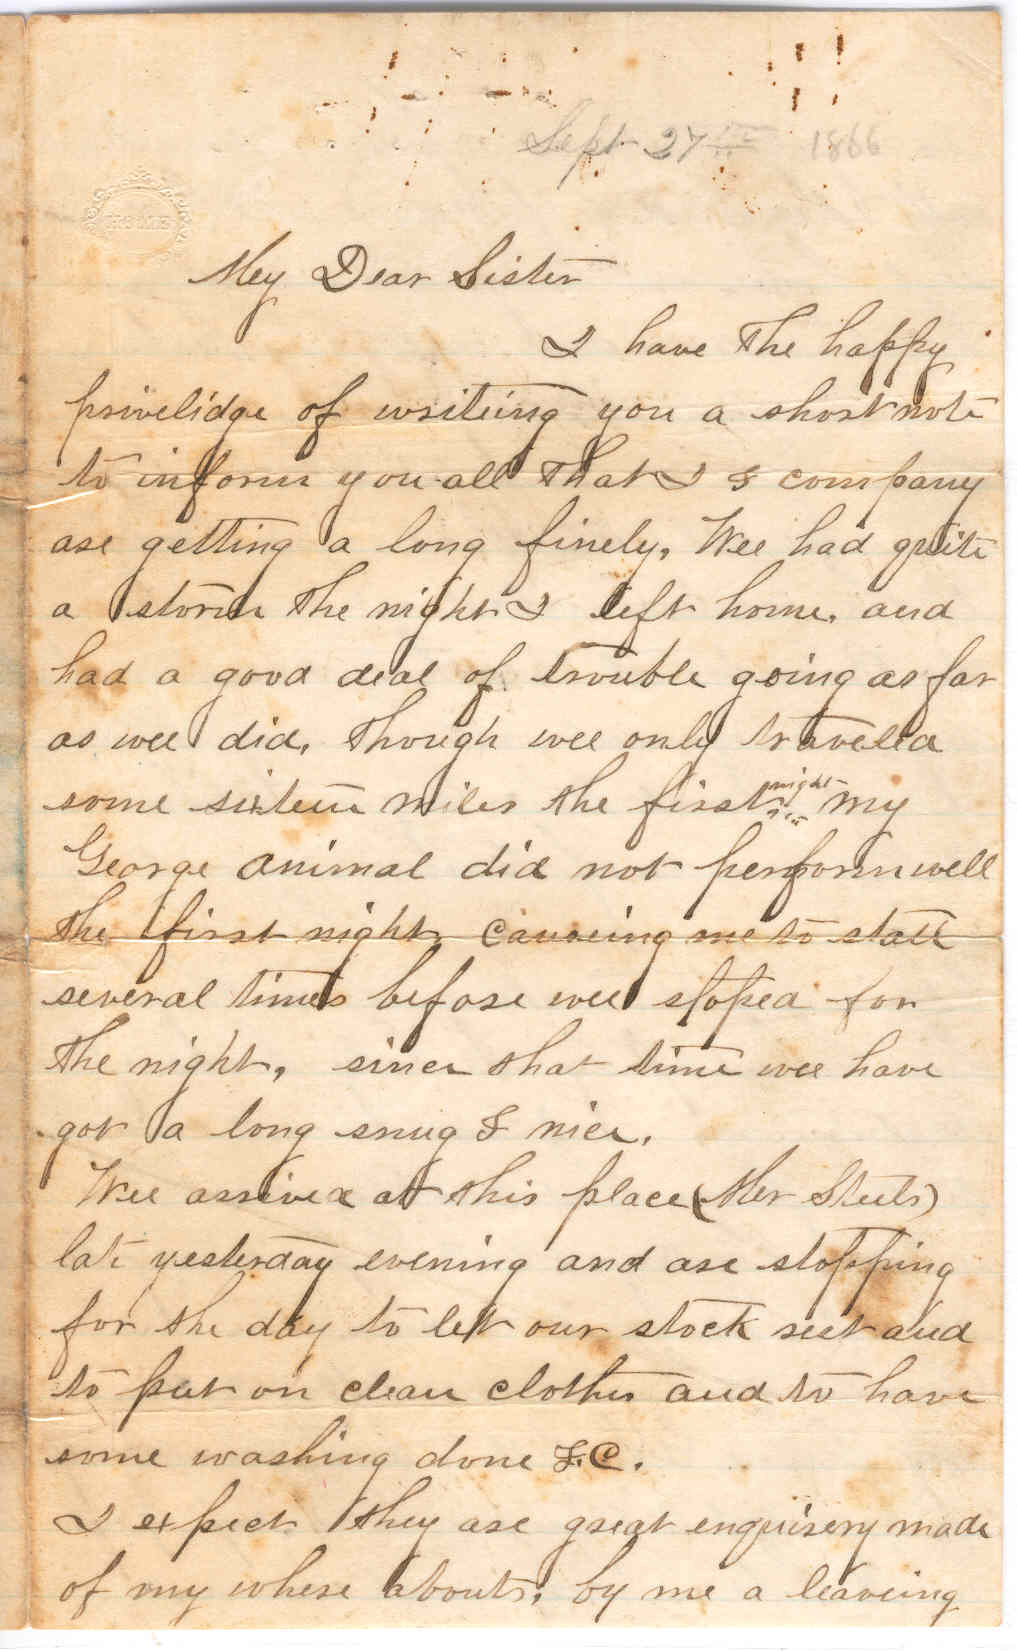 Sept 27th 1866
HOME
Mey Dear Sister
I have the happy
privelidge of writeing you a short note
to inform you all that I & company
are getting a long finely, Wee had quite
a storm the night I left home, and
had a good deal of trouble going as far
as wee did, though wee only traveled
some sixteen miles the first night my
George animal did not perform well
the first night, causeing me to stall
several times before wee stoped for
the night, since that time wee have
got a long snug & nice.
Wee arrived at this place (Mr Steels)
late yesterday evening and are stopping
for the day to let our stock rest and
to put on clean clothes and to have
some washing done &.C.
I expect they are great enquirery made
of my where abouts, by me a leaveing